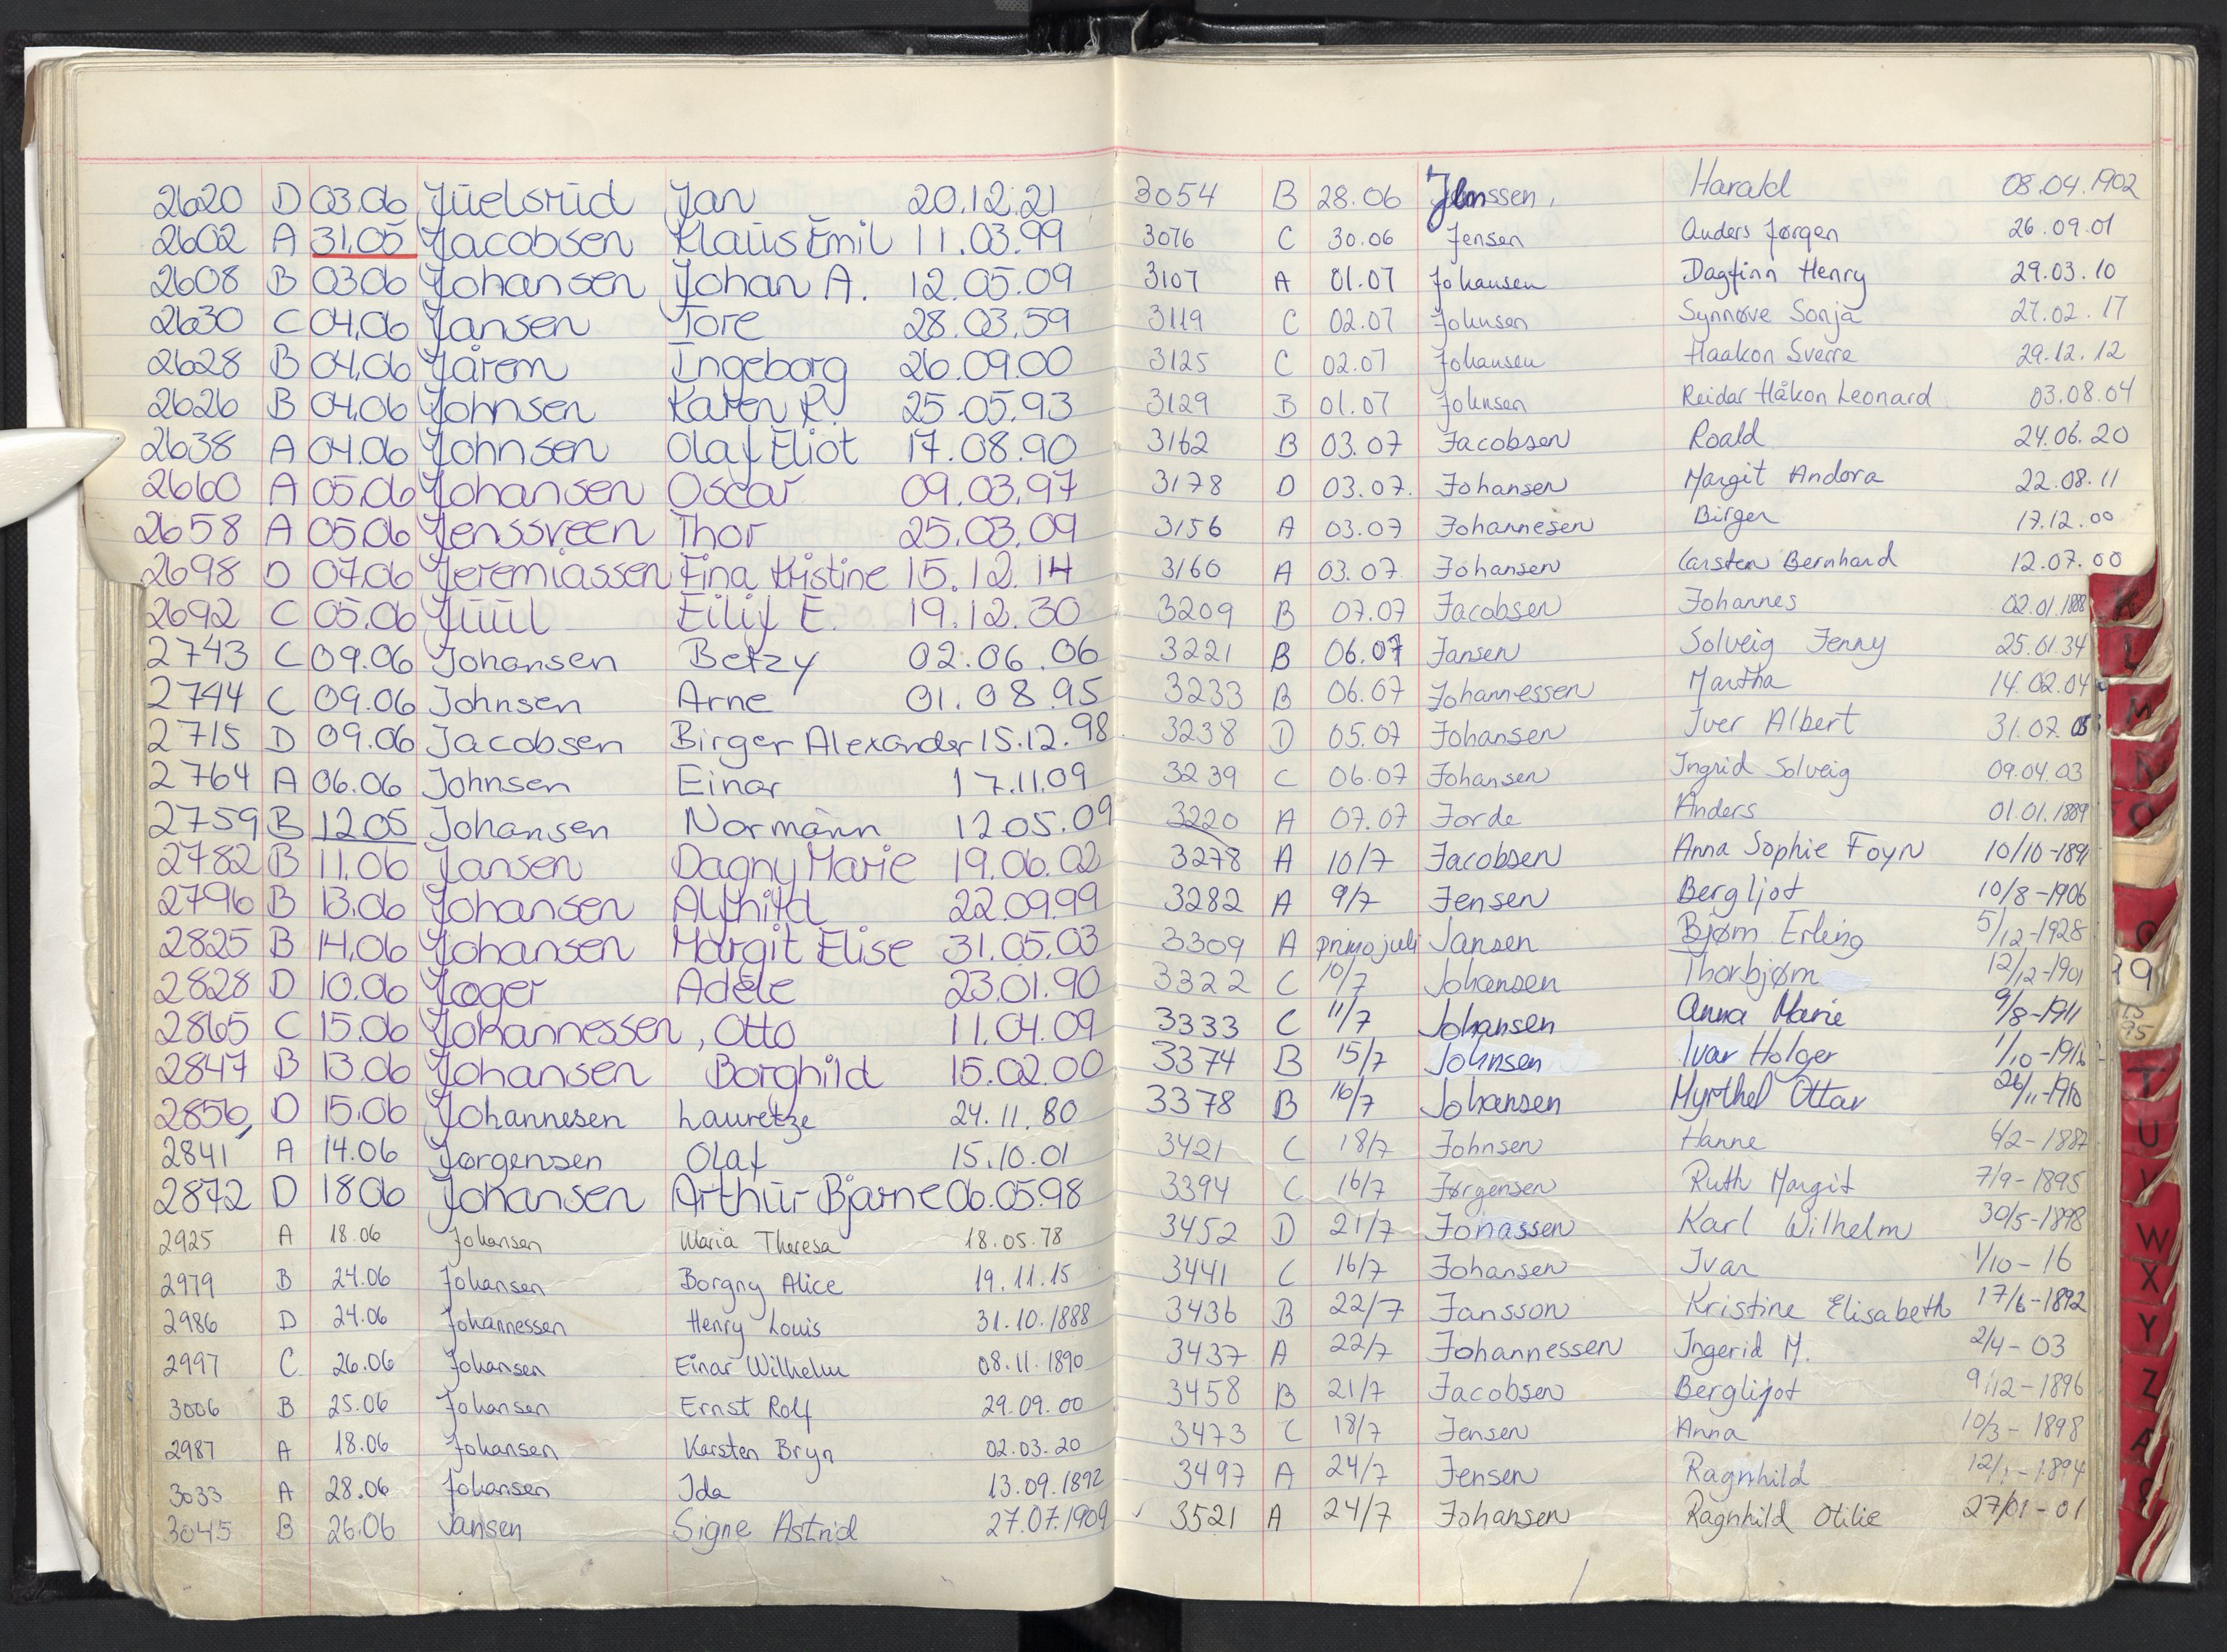 2620 D 03.06 Juelsrud Jan 20.12.21
2602 A 31.05 Jacobsen Klaus Emil 11.03.99
2608 B 03.06 Johansen Johan A. 12.05.09
2630 C 04.06 Jansen Tore 28.03.59
2628 B 04.06 Jåren Ingeborg 26.09.00
2626 B 04.06 Johnsen Karen R. 25.05.93
2638 A 04.06 Johnsen Olaf Eliot 17.08.90
2660 A 05.06 Johansen Oscar 09.03.97
2658 A 05.06 Jenssveen Thor 25.03.09
2698 D 07.06 Jeremiassen Fina Kristine 15.12.14
2692 C 05.06 Juul Eilif E. 19.12.30
2743 C 09.06 Johansen Betzy 02.06.06
2744 C 09.06 Johnsen Arne 01.08.95
2715 D 09.06 Jacobsen Birger Alexander 15.12.98
2764 A 06.06 Johnsen Einar 17.11.09
2759 B 12.05 Johansen Normann 12.05.09
2782 B 11.06 Jansen Dagny Marie 19.06.02
2796 B 13.06 Johansen Alfhild 22.09.99
2825 B 14.06 Johansen Margit Elise 31.05.03
2828 D 10.06 Jæger Adele 23.01.90
2865 C 15.06 Johannessen, Otto 11.04.09
2847 B 13.06 Johansen Borghild 15.02.00
2856, D 15.06 Johannesen Lauretze 24.11.80
2841 A 14.06 Jørgensen Olaf 15.10.01
2872 D 18.06 Johansen Arthur Bjarne 06.05.98
2925 A 18.06 Johansen Maria Theresa 18.05.78
2979 B 24.06 Johansen Borgny Alice 19.11.15
2986 D 24.06 Johannessen Henry Louis 31.10.1888
2997 C 26.06 Johansen Einar Wilhelm 08.11.1890
3006 B 25.06 Johansen Ernst Rolf 29.09.00
2987 A 18.06 Johansen Karsten Bryn 02.03.20
3033 A 28.06 Johansen Ida 13.09.1892
3045 B 26.06 Jansen Signe Astrid 27.07.1909
3054 B 28.06 Harald 08.04.1902
3076 C 30.06 Jensen Anders Jørgen 26.09.01
3107 A 01.07 Johansen Dagfinn Henry 29.03.10
3119 C 02.07 Johnsen Synnøve Sonja 27.02.17
3125 C 02.07 Johansen Haakon Sverre 29.12.12
3129 B 01.07 Johnsen Reidar Håkon Leonard 03.08.04
3162 B 03.07 Jacobsen Roald 24.06.20
3178 D 03.07. Johansen Margit Andora 22.08.11
3156 A 03.07 Johannesen Birger 17.12.00
3160 A 03.07 Johansen Carsten Bernhard 12.07.00
3209 B 07.07 Jacobsen Johannes 02.01.1888
3221 B 06.07 Jansen Solveig Jenny 25.01.34
3233 B 06.07 Johannessen Martha 14.02.04
3238 D 05.07 Johansen Iver Albert 31.07.
3239 C 06.07 Johansen Ingrid Solveig 09.04.03
3220 A 07.07 Jorde Anders 01.01.1889
3278 A 10/7 Jacobsen Anna Sophie Foyn 10/10-189
3282 A 9/7 Jensen Bergljot 10/8-1906
3309 A primo juli Jansen Bjørn Erling 5/12-1928
3322 C 10/7 Johansen Thorbjørn 12/12-1901
3333 C 11/7 Johansen Anna Marie 9/8-1911
3374 B 15/7 Johnsen Ivar Holger 1/10-1916
3378 B 16/7 Johansen Myrthel Ottar 26/11-1910
3421 C 18/7 Johnsen Hanne 6/2-1887
3394 C 16/7 Jørgensen Ruth Margit 7/9-1895
3452 D 21/7 Jonassen Karl Wilhelm 30/5-1898
3441 C 16/7 Johansen Ivar 1/10-16
3436 B 22/7 Jansson Kristine Elisabeth 17/6-1892
3437 A 22/7 Johannessen Ingerid M. 2/4-03
3458 B 21/7 Jacobsen Berglijot 9/12-1896
3473 C 18/7 Jensen Anna 10/3-1898
3497 A 24/7 Jensen Ragnhild
3521 A 24/7 Johansen Ragnhild Otilie 27/01-01
K
L
M
N
O
T
U
V
W
X
Y
Z